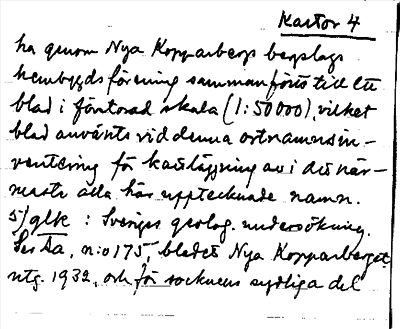 Kartor 4
ha genom Nya Kopparbergs bergslags
hembygdsförening sammanförts till ett
blad i förstorad skala (1:50000), vilket
blad använts vid denna ortnamnsin-
ventering för kartläggning av i det när-
maste alla här upptecknade namn.
5/ glk : Sveriges geolog. undersökning.
Ser. Aa, n:o 175, bladet Nya Kopparberget,
utg. 1932, och för socknens sydliga del